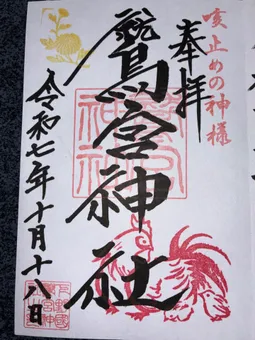 咳止めの神様
奉拝
鷲宮神社
令和七年十月十八日